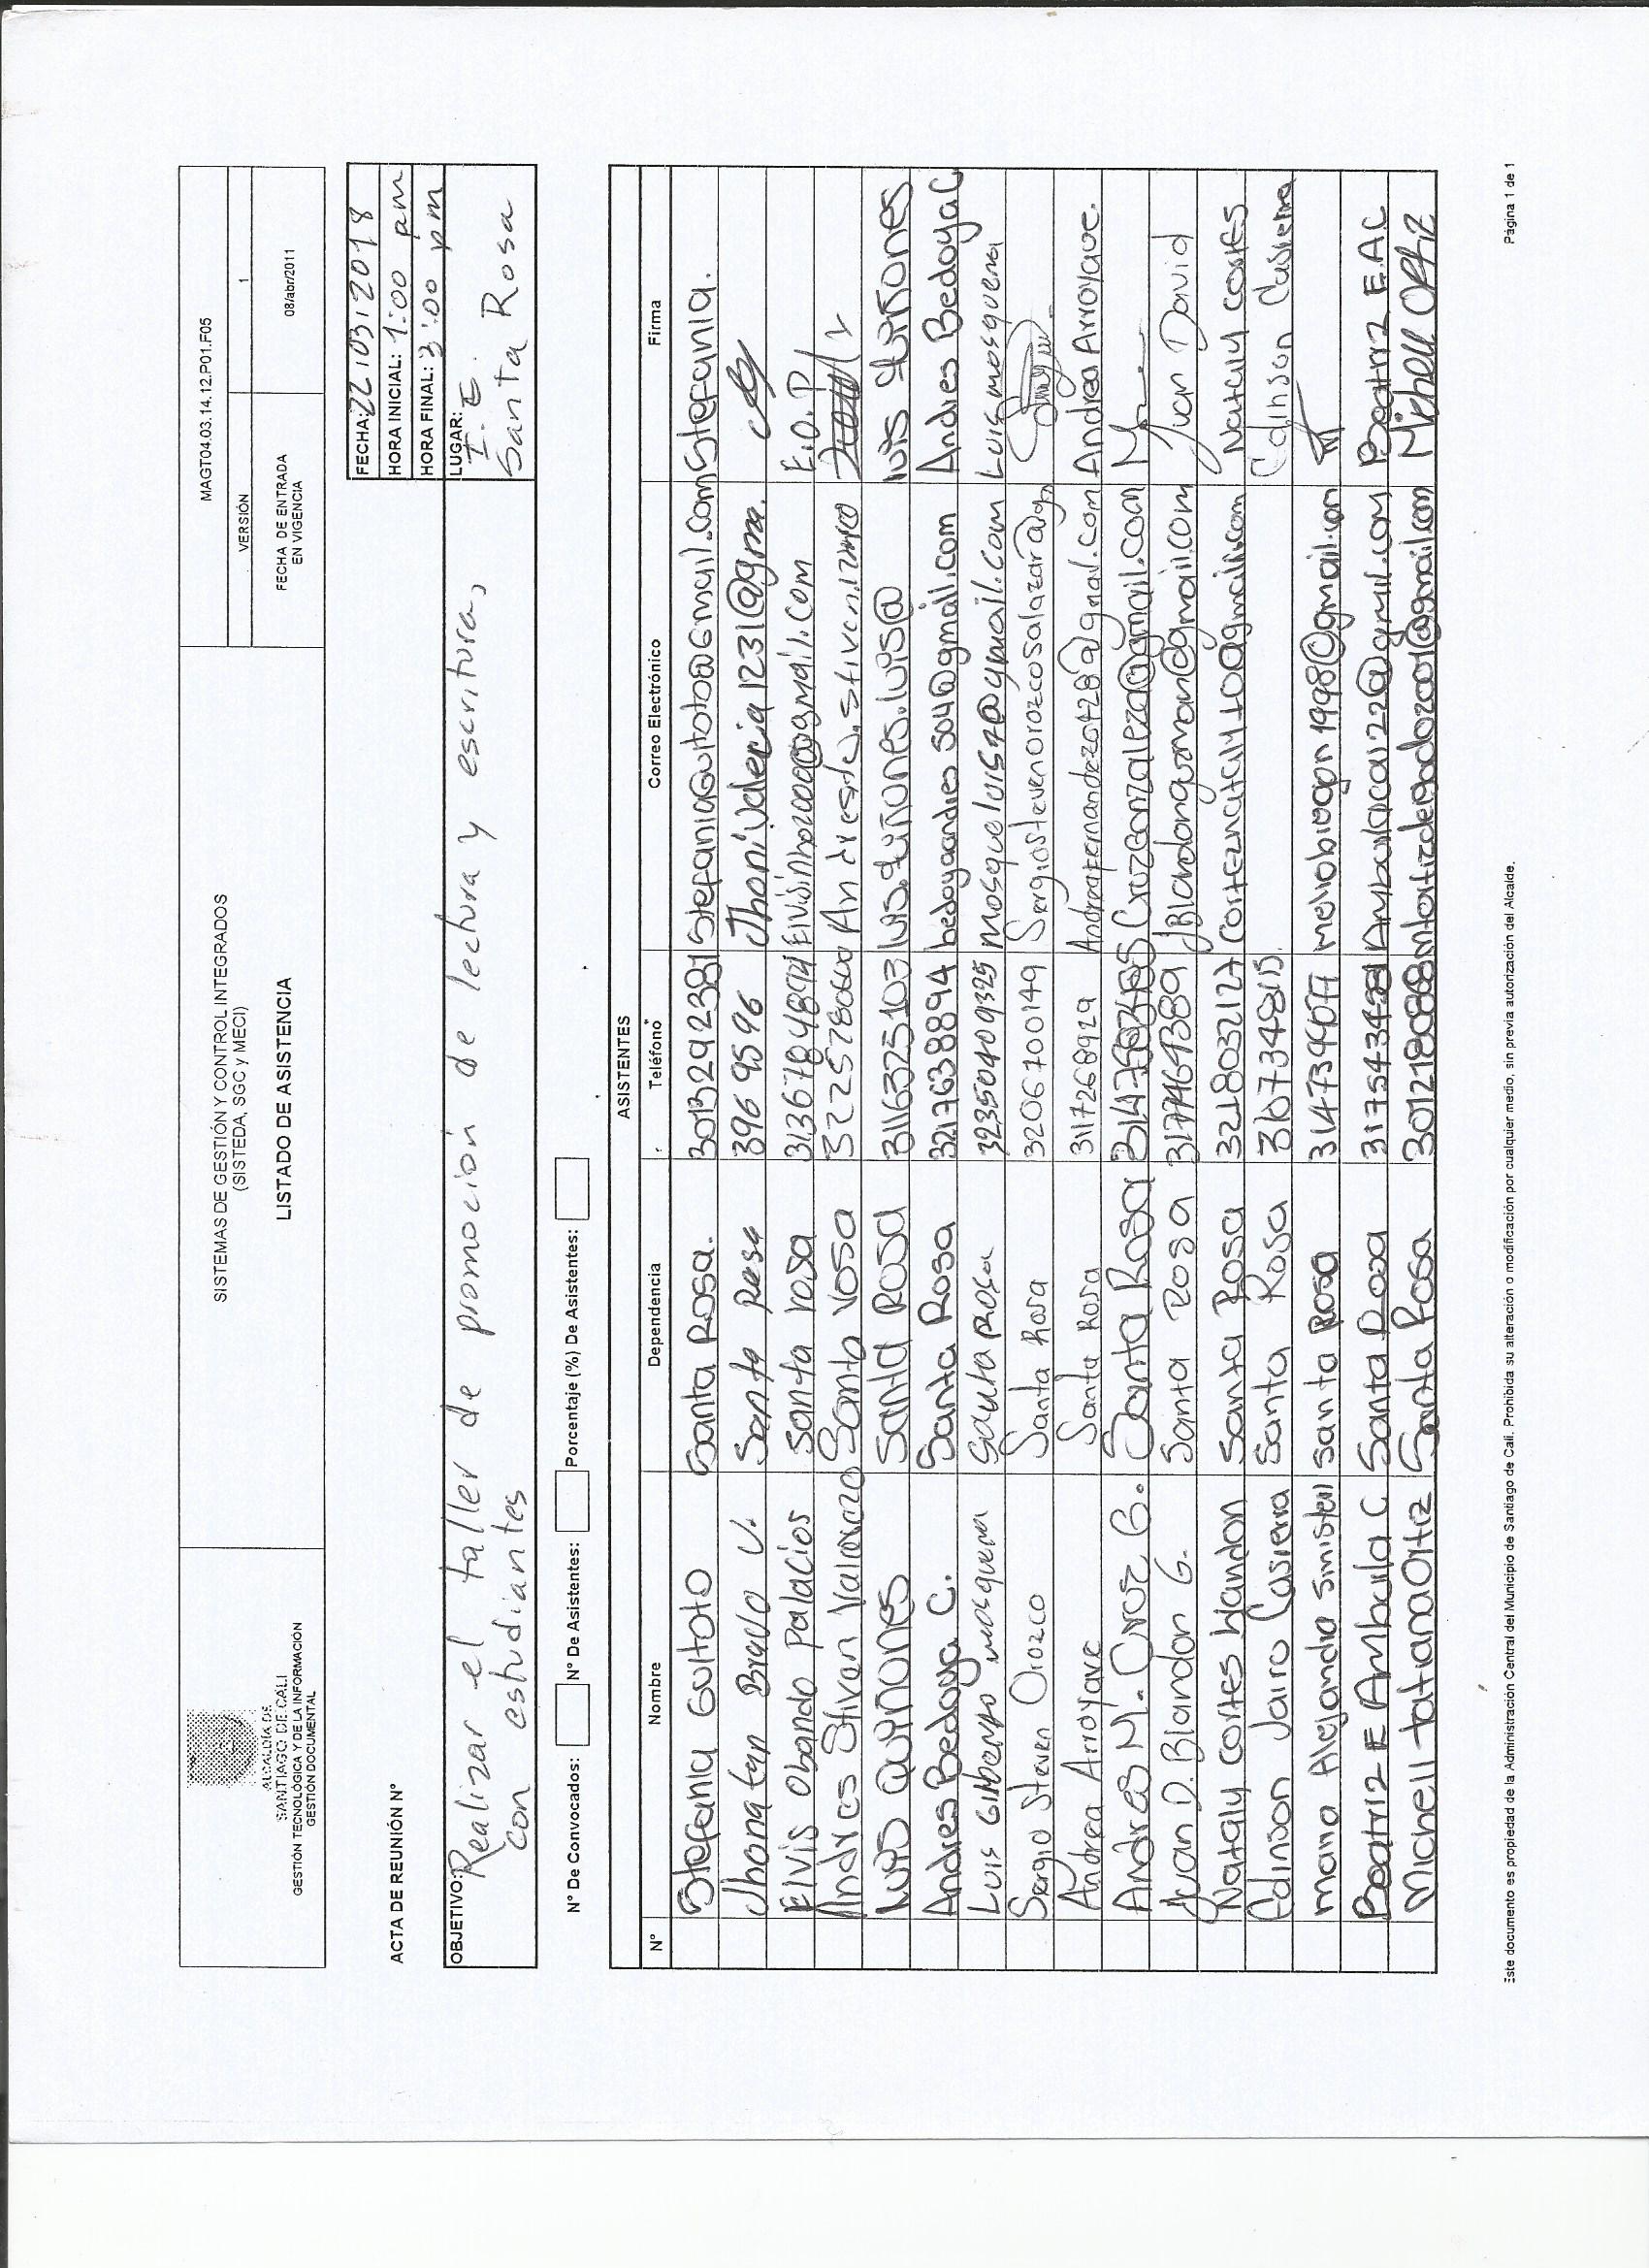 ALCALDÍA DE
SANTIAGO DE CALI
GESTIÓN TECNOLÓGICA Y DE LA INFORMACIÓN
GESTIÓN DOCUMENTAL
SISTEMAS DE GESTIÓN Y CONTROL INTEGRADOS
(SISTEDA, SGC y MECI)
LISTADO DE ASISTENCIA
MAGT04.03.14.12.P01.F05
VERSIÓN 1
FECHA DE ENTRADA
EN VIGENCIA
08/abr/2011
FECHA: 22/03/2018
ACTA DE REUNIÓN N°
HORA INICIAL: 1:00 pm
HORA FINAL: 3:00 pm
OBJETIVO: Realizar el taller de promoción de lectura y escritura,
con estudiantes
LUGAR:
I.E.
Santa Rosa
N° De Convocados: N° De Asistentes: Porcentaje (%) De Asistentes:
ASISTENTES
N° Nombre Dependencia Teléfono Correo Electrónico Firma
Stefania Guitoto Santa Rosa. 3013292381 StefaniaGuitoto@Gmail.com Stefania.
Jhonatan Bravo V. Santa Rosa 3969596 Jhonivalecia1231@gma.
Elvis Obando Palacios santa rosa Elvisinho2000@gmail.com E.O.P
Andres Stiven Santa rosa
Luis Quiñones Santa Rosa 3116325103 luis.quiñones.luis@ luis quiñones
Andres Bedoya C. Santa Rosa 3217638894 bedoyaandres504@gmail.com Andres Bedoya C
Luis Gilberto mosquera Santa Rosa 32350409325 mosqueluis7@gmail.com Luis mosquera
Sergio Steven Orozco Santa Rosa 3206700149 Sergiostevenorozcosalazar@g
Andrea Arroyave Santa Rosa 3117268929 Andrea Arroyave.
Andres M. Cruz G. Santa Rosa Cruzgonzaleza@gmail.com
Juan D. Blandon G. Santa Rosa JBlandonguzman@gmail.com Juan David
Nataly cortes Santa Rosa 3218032127 corteznataly10@gmail.com Nataly cortes
Edinson Jairo Casierra Santa Rosa Edinson Casierra
maria Alejandra santa Rosa
Beatriz E Ambuila C Santa Rosa Beatriz E.A.C
Michell tatiana Ortiz Santa Rosa mtortizdelgado2001@gmail.com Michell Ortiz
Este documento es propiedad de la Administración Central del Municipio de Santiago de Cali. Prohibida su alteración o modificación por cualquier medio, sin previa autorización del Alcalde.
Página 1 de 1